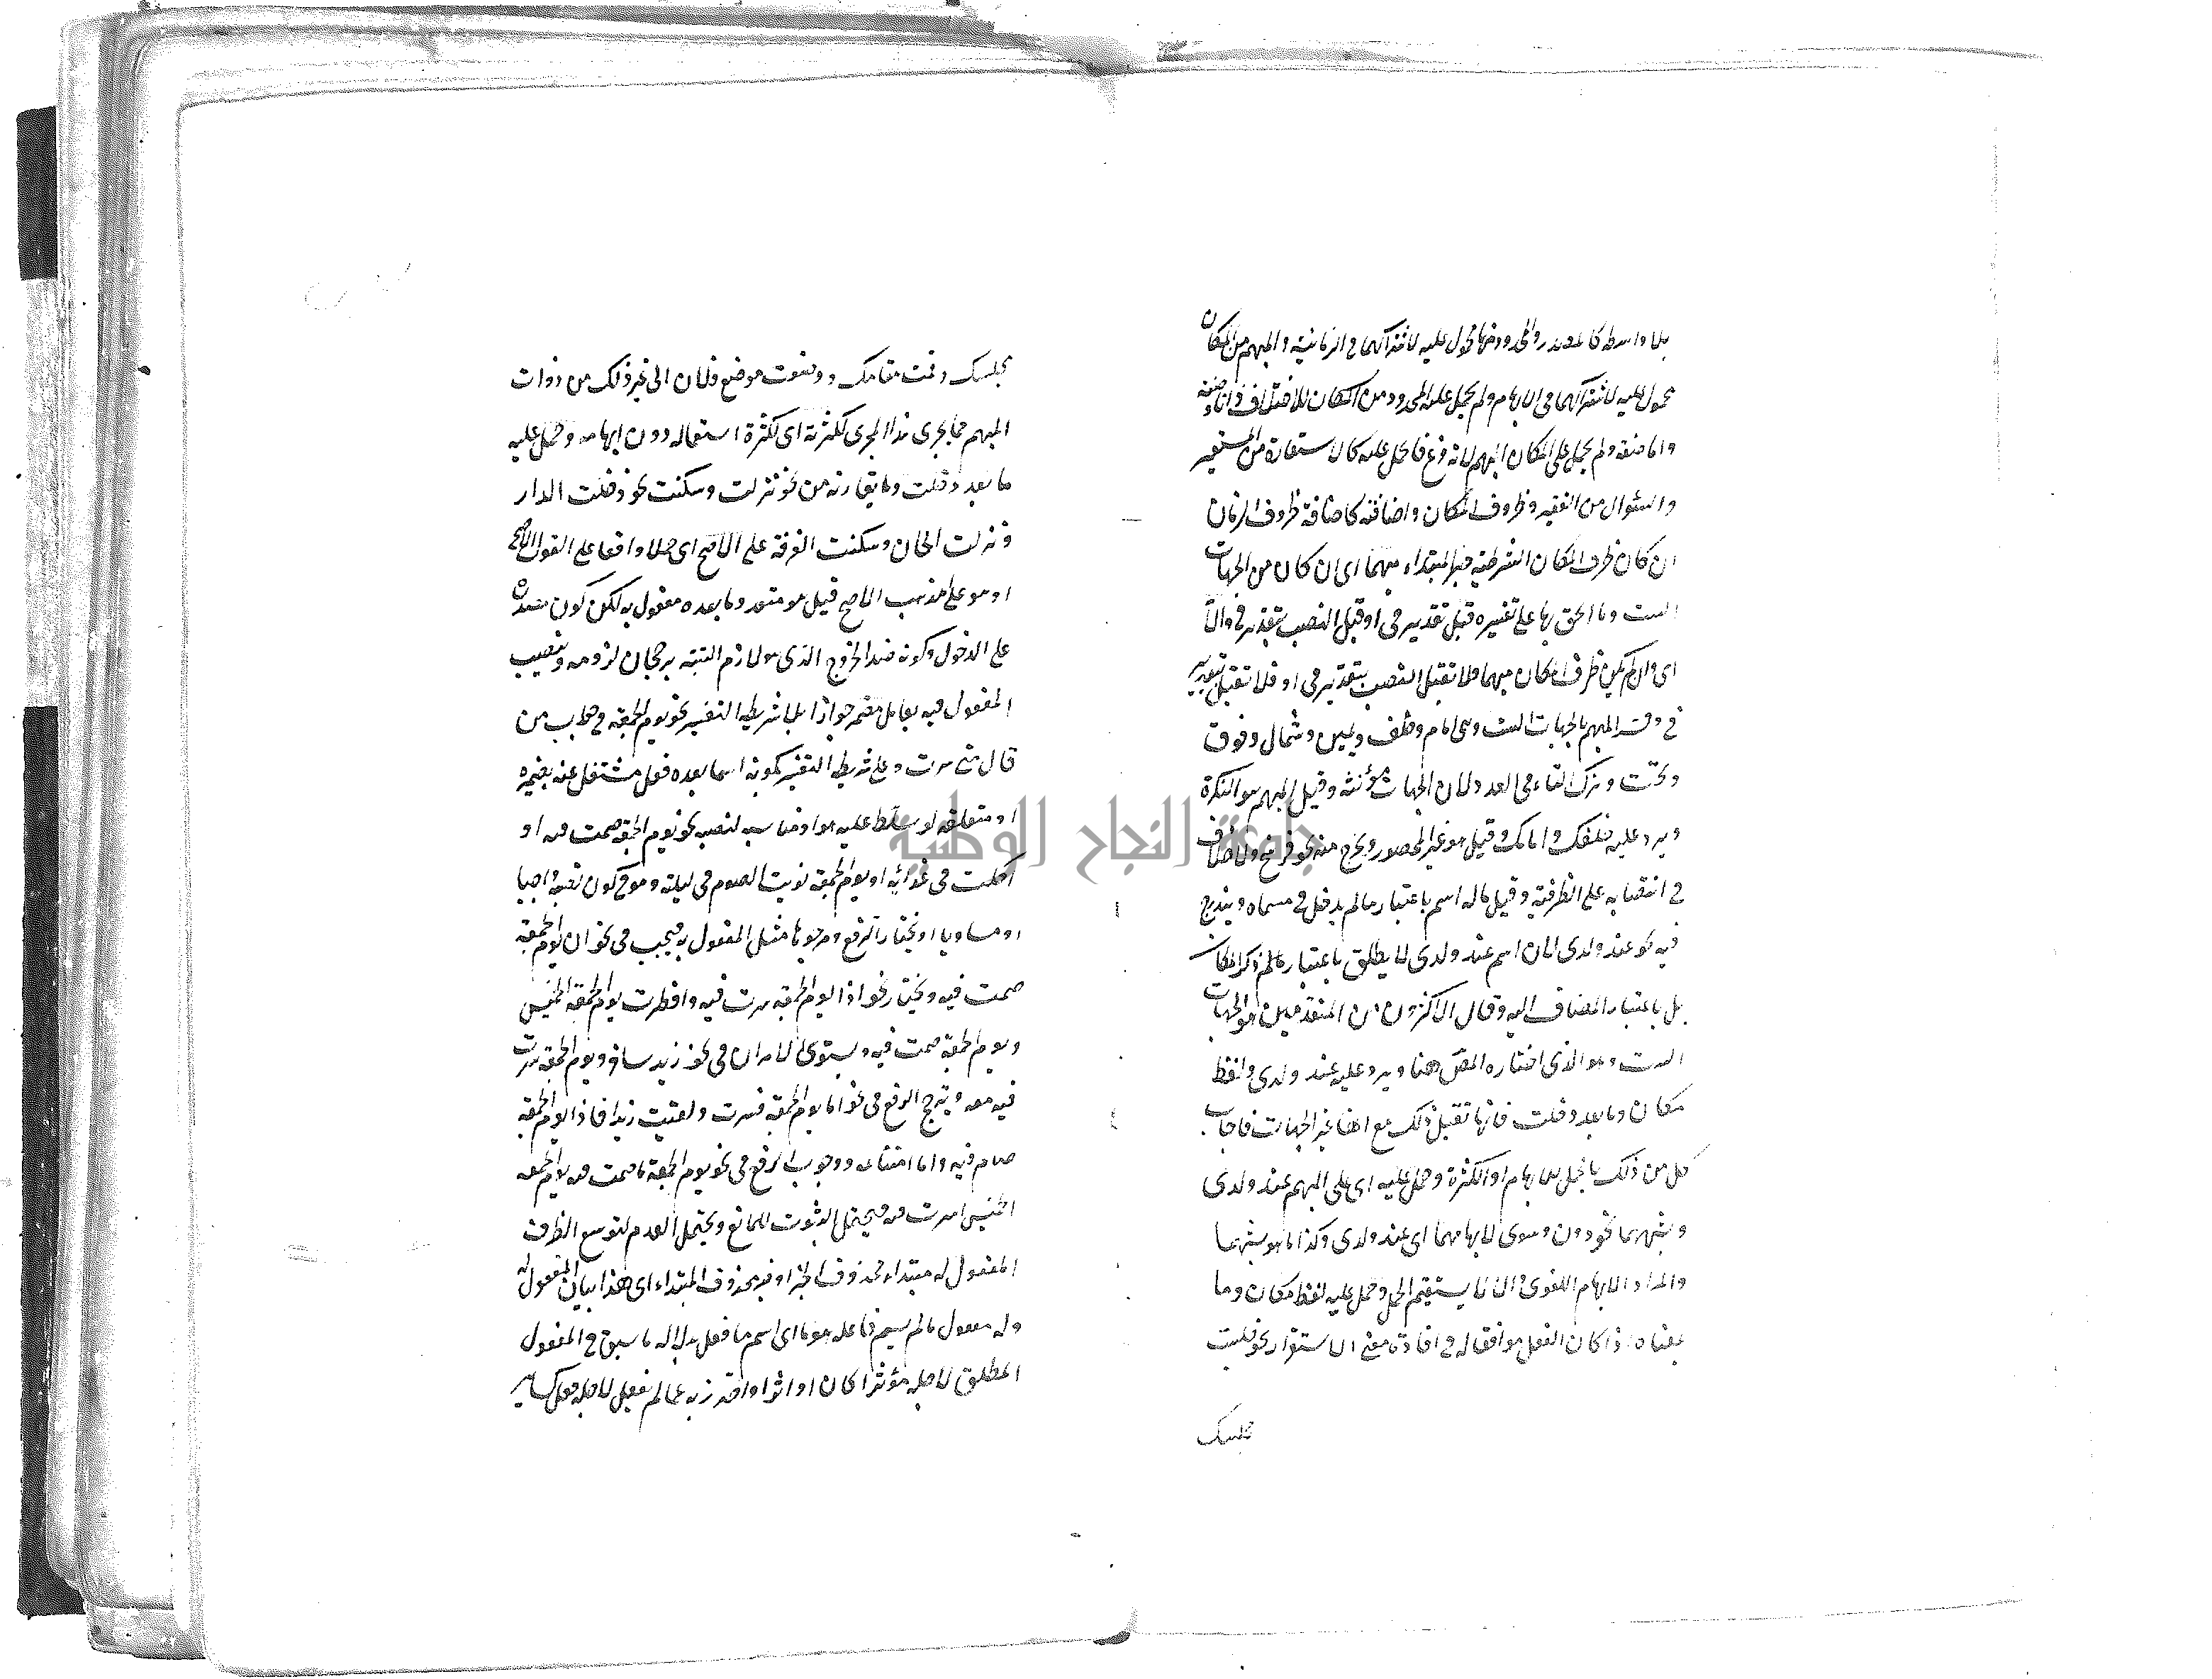 بلا واسطة كالمصدر والمحدود منها محمول عليه لاشتراكهما في الزمانية والمبهم من المكان
محمول عليه لاشتراكهما في الابهام ولم يحمل على المحدود من المكان للاختلاف ذاتا وصفة
واما صفة ولم يحمل على المكان المبهم لانه فرع فالحمل عليه كالاستعارة من المستعير
والسئوال من الفقير وظروف المكان واضافته كاضافة ظروف الزمان
ان كان ظرف المكان الشرطية خبر المبتداء مبهما اى ان كان من الجهات
الست وما الحق بها على تفسيره قبل تقدير فى او قبل النصب بتقدير فى والا
اى وان لم يكن ظرف المكان مبهما فلا تقبل النصب بتقدير فى او فلا تقبل تقدير
فى وفسر المبهم بالجهات الست وهى امام وخلف ويمين وشمال وفوق
وتحت وترك التاء فى العدد لان الجهات مؤنثة وقيل المبهم هو النكرة
ويرد عليه خلفك وامامك وقيل هو غير المحصور ويخرج منه نحو فرسخ ولا خلاف
فى انتصابه على الظرفية وقيل ماله اسم باعتبار ما لم يدخل فى مسماه ويندرج
فيه نحو عند ولدى لان اسم عند ولدى لا يطلق باعتبار ما لم ذكر المكان
بل باعتبار المضاف اليه وقال الاكثرون من المتقدمين هو الجهات
الست وهو الذى اختاره المص هنا ويرد عليه عند ولدى ولفظ
مكان وما بعد دخلت فانها تقبل ذلك مع انها غير الجهات فاجاب
كل من ذلك بالحمل للابهام او الكثرة وحمل عليه اى على المبهم عند ولدى
وشبههما نحو دون وسوى لابهامهما اى عند ولدى وكذا ما هو شبههما
والمراد الابهام اللغوى والا لا يستقيم الحمل وحمل عليه لفظ مكان وما
بمعناه اذا كان الفعل موافقا له فى افادة معنى الاستقرار نحو جلست
مجلسك
مجلسك وقمت مقامك ووضعت موضع فلان الى غير ذلك من ذوات
المبهم مما يجرى هذا المجرى لكثرته اى لكثرة استعماله دون ابهامه وحمل عليه
ما بعد دخلت وما يقاربه من نحو نزلت وسكنت نحو دخلت الدار
ونزلت الخان وسكنت الغرفة على الاصح اى حملا واقعا على القول الاصح
او هو على المذهب الاصح قيل هو متعد وما بعده مفعول به لكن كون مصدره
على الدخول وكونه ضد الخروج الذى هو لازم البتة يرجحان لزومه وينصب
المفعول فيه بعامل مضمر جوازا بلا شريطة التفسير نحو يوم الجمعة فى جواب من
قال متى سرت وعلى شريطة التفسير بكونه اسما بعده فعل مشتغل عنه بضميره
او متعلقه لو سلط عليه هو او مناسبه لنصبه نحو يوم الجمعة صمت فيه او
اكلت فى غدائه او يوم الجمعة نويت الصوم فى ليلته وهو فى كون نصبه واجبا
او مساويا او مختارا الرفع ومرجوحا مثل المفعول به فيجب فى نحو ان يوم الجمعة
صمت فيه ويختار نحو اذا يوم الجمعة سرت فيه وافطرت يوم الجمعة الخميس
ويوم الجمعة صمت فيه ويستوى الامران فى نحو زيد سافر ويوم الجمعة سرت
فيه معه ويترجح الرفع فى نحو اما يوم الجمعة فسرت ولقيت زيدا فاذا يوم الجمعة
صام فيه واما امتناعه ووجوب الرفع فى نحو يوم الجمعة ما صمت فيه يوم الجمعة
الخميس اسرت فيه فيحتمل الثبوت للمانع ويحتمل العدم لتوسع الظرف
المفعول له مبتداء محذوف الخبر او خبر محذوف المبتداء اى هذا بيان المفعول له
وله مفعول ما لم يسم فاعله هو ما اى اسم ما فعل بدلالة ما سبق فى المفعول
المطلق لاجله مؤثرا كان او اثرا واحترز به عما لم يفعل لاجله فعل كساير